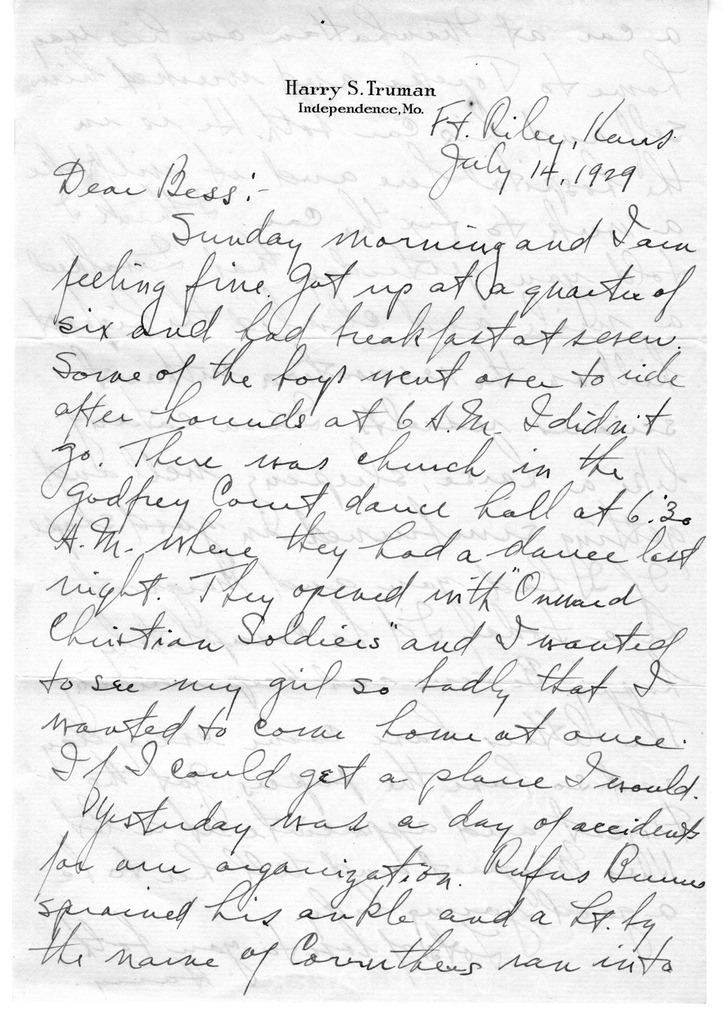 Harry S. Truman
Independence, Mo.
Ft. Riley, Kans.
July 14, 1929
Dear Bess:-
Sunday morning and I am
feeling fine. Got up at a quarter of
six and had breakfast at seven.
Some of the boys went over to ride
after hounds at 6 A.M. I didn't
go. There was church in the
Godfrey Court dance hall at 6:30
A.M. where they had a dance last
night. They opened with "Onward
Christian Soldiers" and I wanted
to see my girl so badly that I
wanted to come home at once.
If I could get a plane I would.
Yesterday was a day of accidents
for our organization. Rufus Burrus
sprained his ankle and a Lt. by
the name of Corruthers ran into